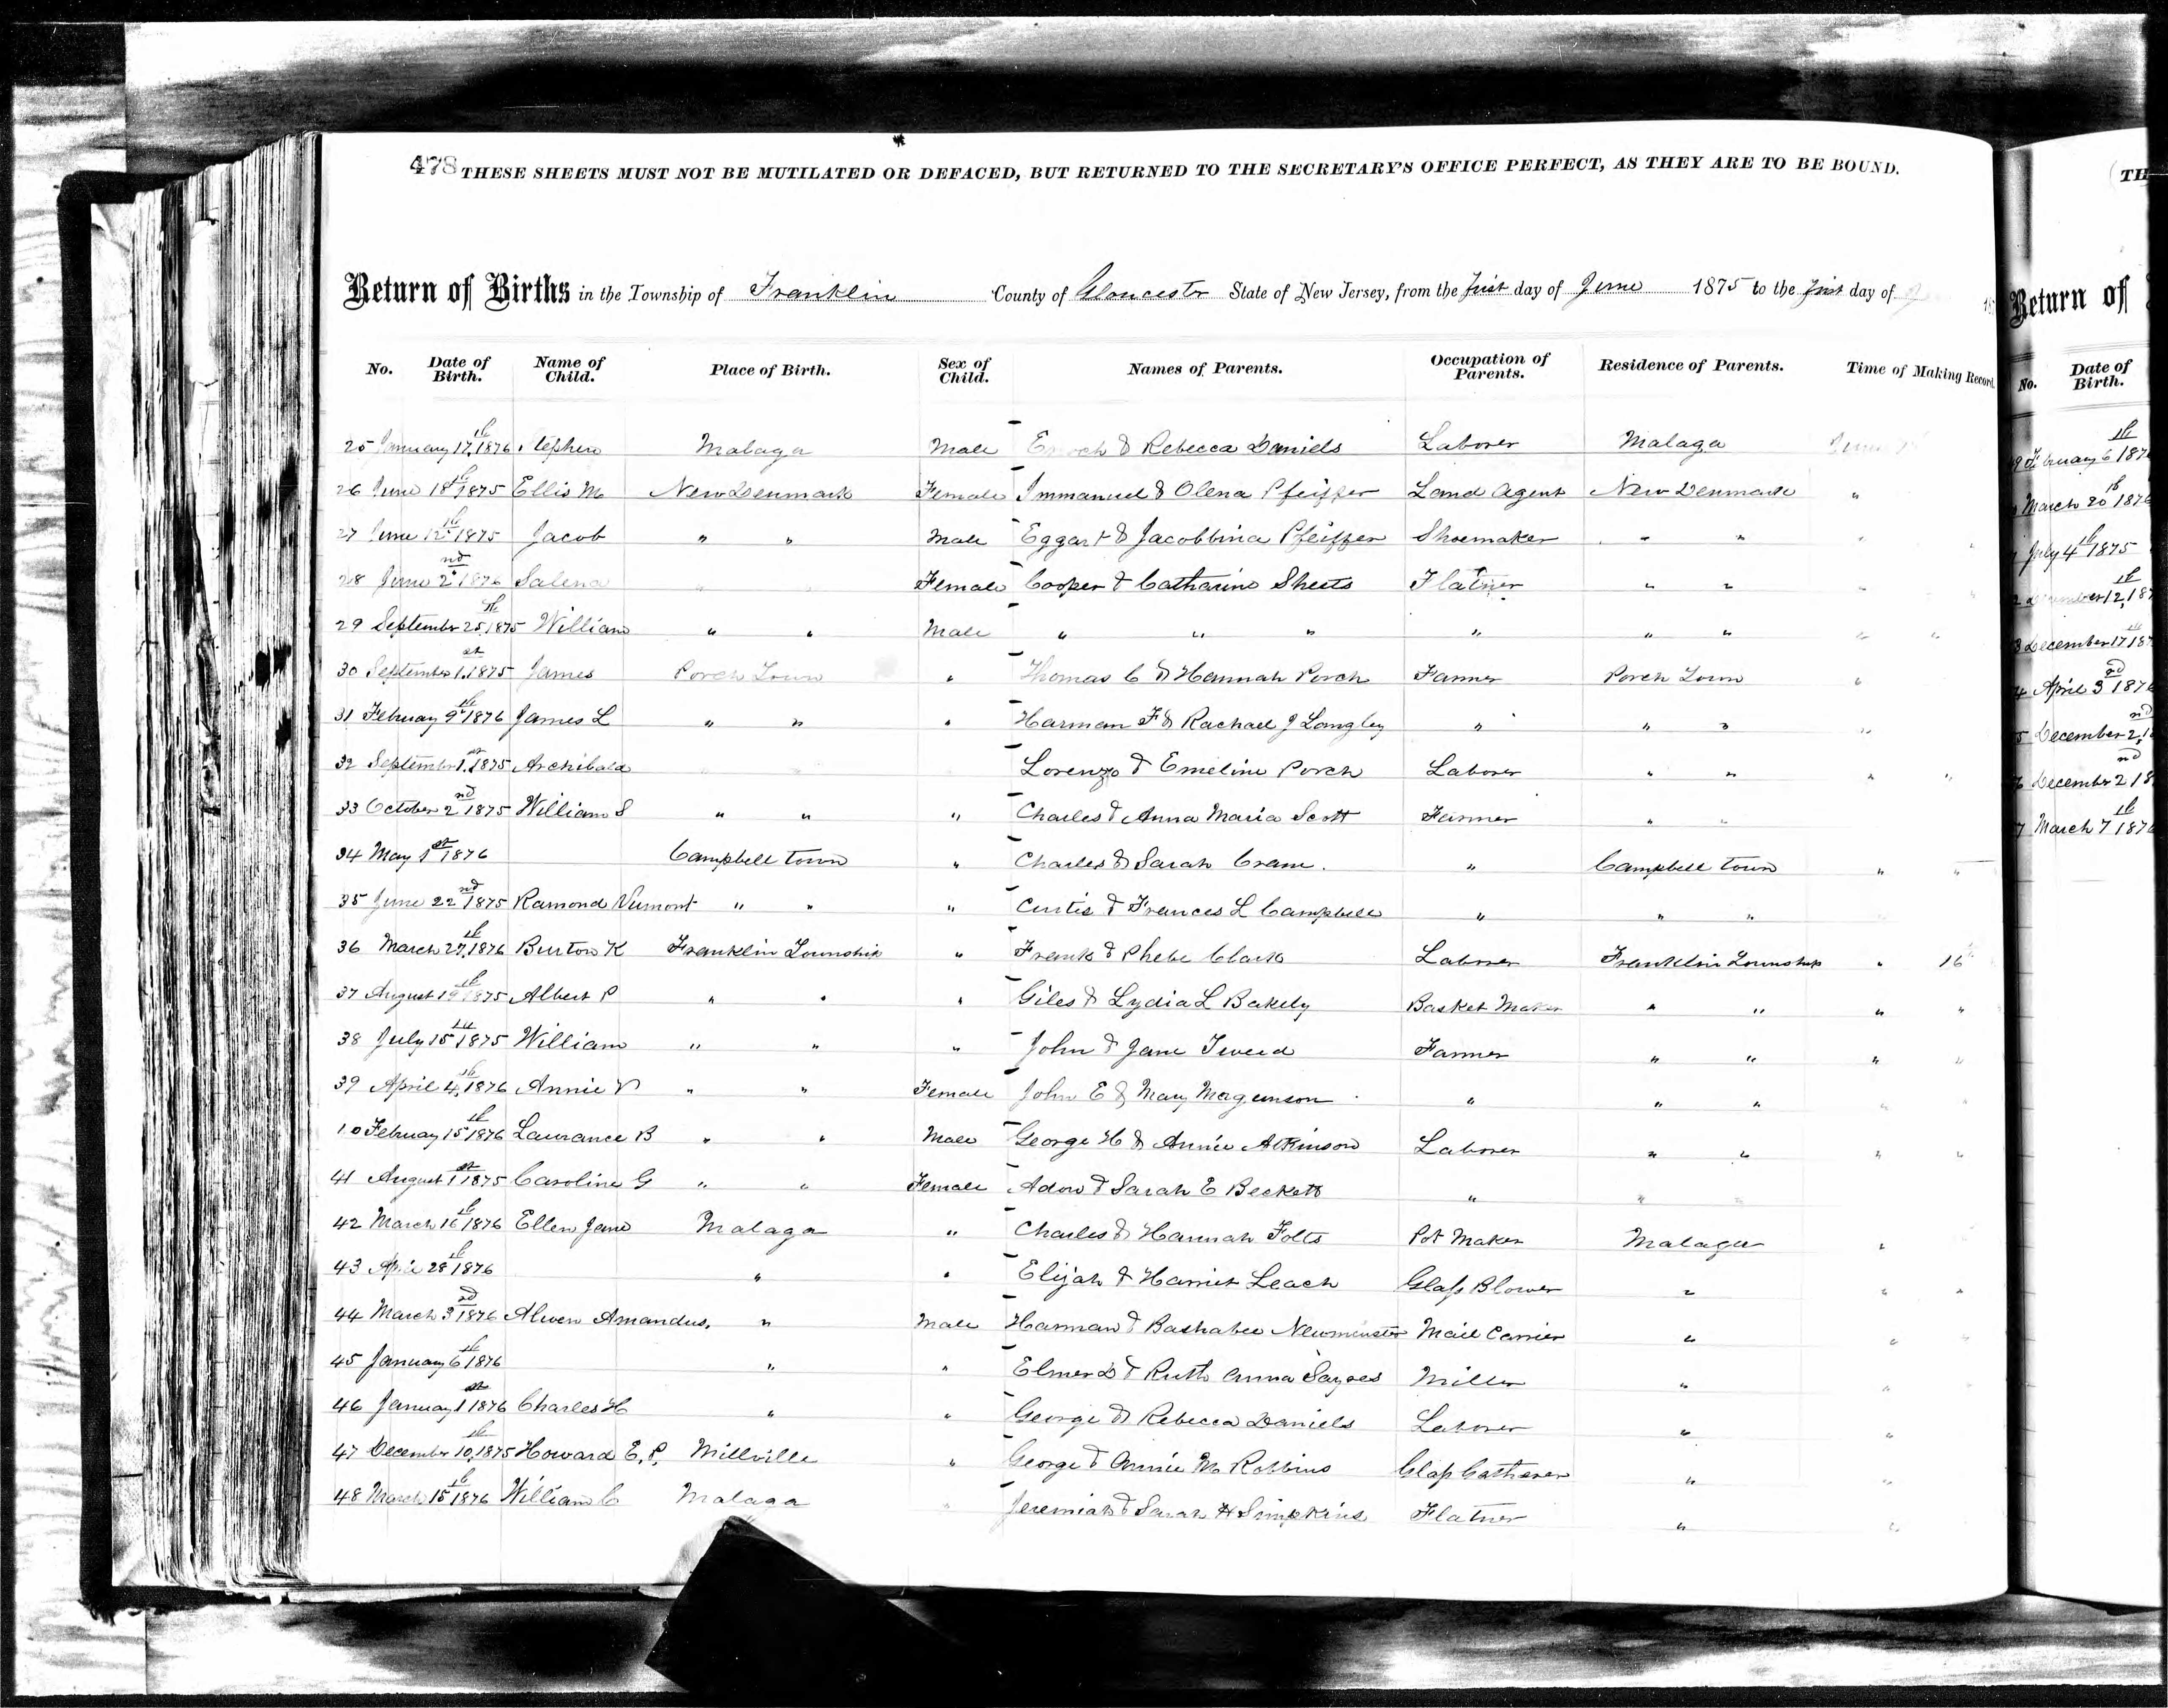 478 THESE SHEETS MUST NOT BE MUTILATED OR DEFACED, BUT RETURNED TO THE SECRETARY'S OFFICE PERFECT, AS THEY ARE TO BE BOUND.
Return of Births in the Township of Franklin County of Gloucester State of New Jersey, from the first day of June 1875 to the first day of
No. Date of Birth. Name of Child. Place of Birth. Sex of Child. Names of Parents. Occupation of Parents. Residence of Parents. Time of Making Record.
25 January 17th, 1876 Malaga Male Enoch & Rebecca Daniels Laborer Malaga June
26 June 18th 1875 Ellis M New Denmark Female Immanuel & Olena Pfeiffer Land Agent New Denmark "
27 June 12th 1875 Jacob " " Male Eggart & Jacobbina Pfeiffer Shoemaker " " "
28 June 2nd 1876 Salena " " Female Cooper & Catharine Sheets Flatner " " "
29 September 25th, 1875 William " " Male " " " " " " " "
30 September 1st, 1875 James Porch Town " Thomas C & Hannah Porch Farmer Porch Town "
31 Februay 9th 1876 James L " " " Harman F & Rachael J Langley " " " "
32 September 1st, 1875 Archibald Lorenzo & Emeline Porch Laborer " " " "
33 October 2nd 1875 William S " " " Charles & Anna Maria Scott Farmer " "
34 May 1st 1876 Campbell town " Charles & Sarah Crane. " Campbell town " "
35 June 22nd 1875 Ramond Vumont " " " Curtis & Frances L Campbell " " "
36 March 27th, 1876 Burton K Franklin Township " Frank & Phebe Clark Laborer Franklin Township " 16
37 August 19th 1875 Albert P " " " Giles & Lydia L Bakely Basket Maker " " " "
38 July 15th 1875 William " " " John & Jane Tweed Farmer " " " "
39 April 4th, 1876 Annie V " " Female John E & Mary Magunson " " " " "
40 Februay 15th 1876 Laurance B " " Male George H & Annie Atkinson Laborer " " " "
41 August 1st 1875 Caroline G " " Female Adon & Sarah E Beckett " " "
42 March 16th 1876 Ellen Jane Malaga " Charles & Hannah Folts Pot Maker Malaga "
43 April 28th 1876 " " Elijah & Harriet Leach Glass Blower " " "
44 March 3rd 1876 Alwen Amandus. " Male Harman & Bashabee Newminster Mail Carrier " " "
45 January 6th 1876 " " Elmer D & Ruth Anna Sayres Miller " "
46 January 1st 1876 Charles H " " George & Rebecca Daniels Laborer " "
47 December 10th, 1875 Howard E. P. Millville " George & Annie M Robbins Glass Gatherer " "
48 March 15th 1876 William C Malaga " Jeremiah & Sarah H Simpkins Flatner " "
TH
Return of
No. Date of Birth.
February 6th 187
March 20th 1876
July 4th 1875
12, 187
December 17th 187
April 3rd 1876
December 2nd, 1
December 2nd 18
March 7th 1876